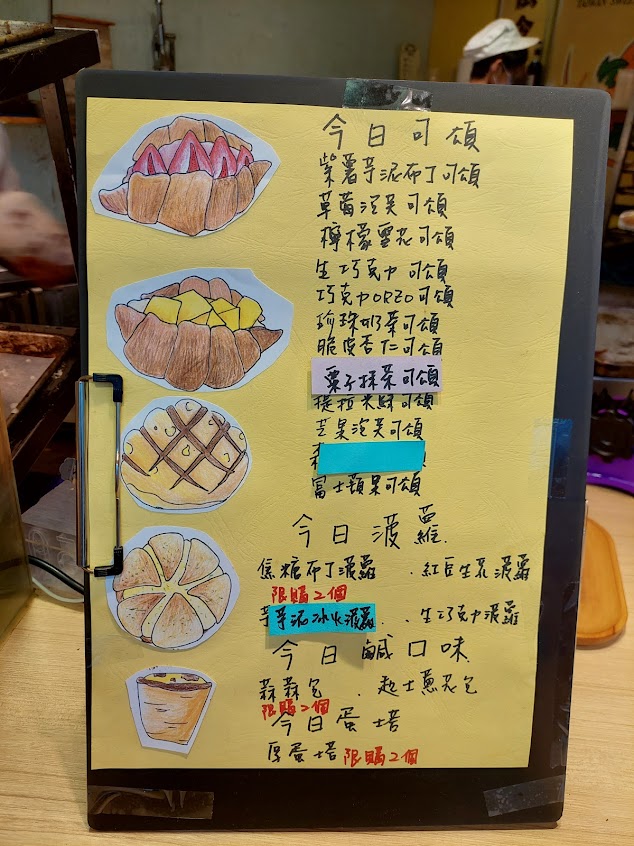 今日可頌
紫薯芋泥布丁可頌
草莓泡芙可頌
檸檬雪花可頌
生巧克力可頌
巧克力ORZO可頌
珍珠奶茶可頌
脆皮杏仁可頌
栗子抹茶可頌
提拉米酥可頌
芒果泡芙可頌
富士蘋果可頌
今日波蘿
焦糖布丁波蘿 .紅豆生乳波蘿
限購2個
芋芋泥冰火波蘿 .生巧克力波蘿
今日鹹口味
蒜蒜包 .起士蔥花包
限購2個
今日蛋塔
厚蛋塔 限購2個